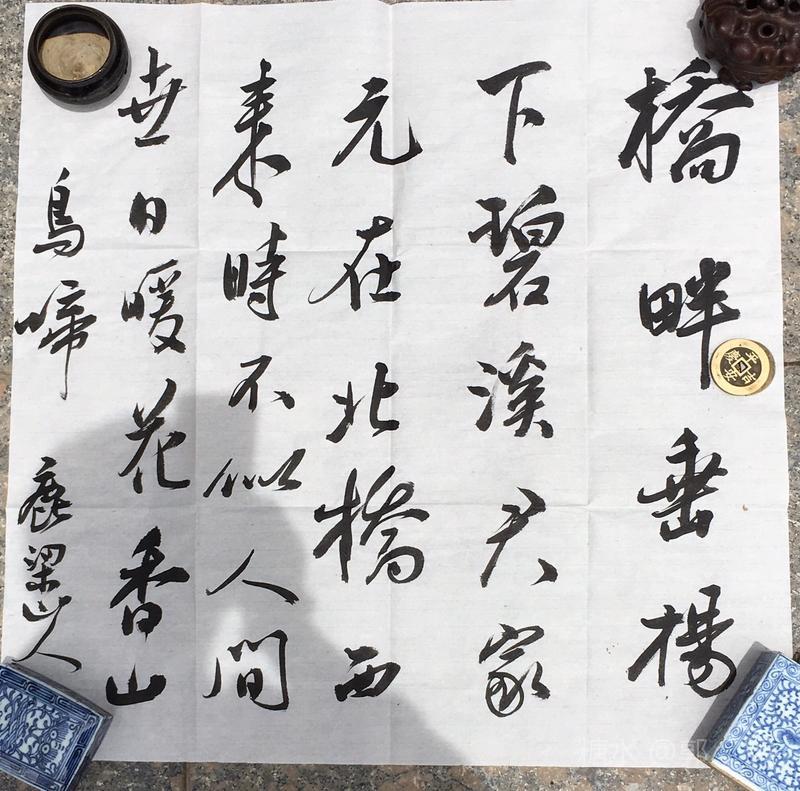 橋畔垂楊
下碧溪君家
元在北橋西
来時不似人間
世日暖花香山
鳥啼
鹿梁山人